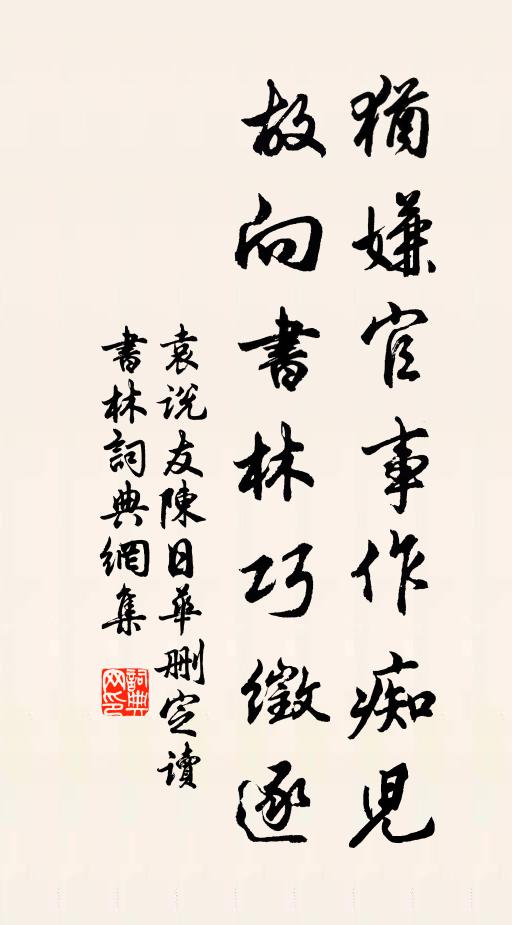 猶嫌官事作痴児
故向書林巧徵逐
袁说友陳日華删定讀
書林詞典網集
詞典网印